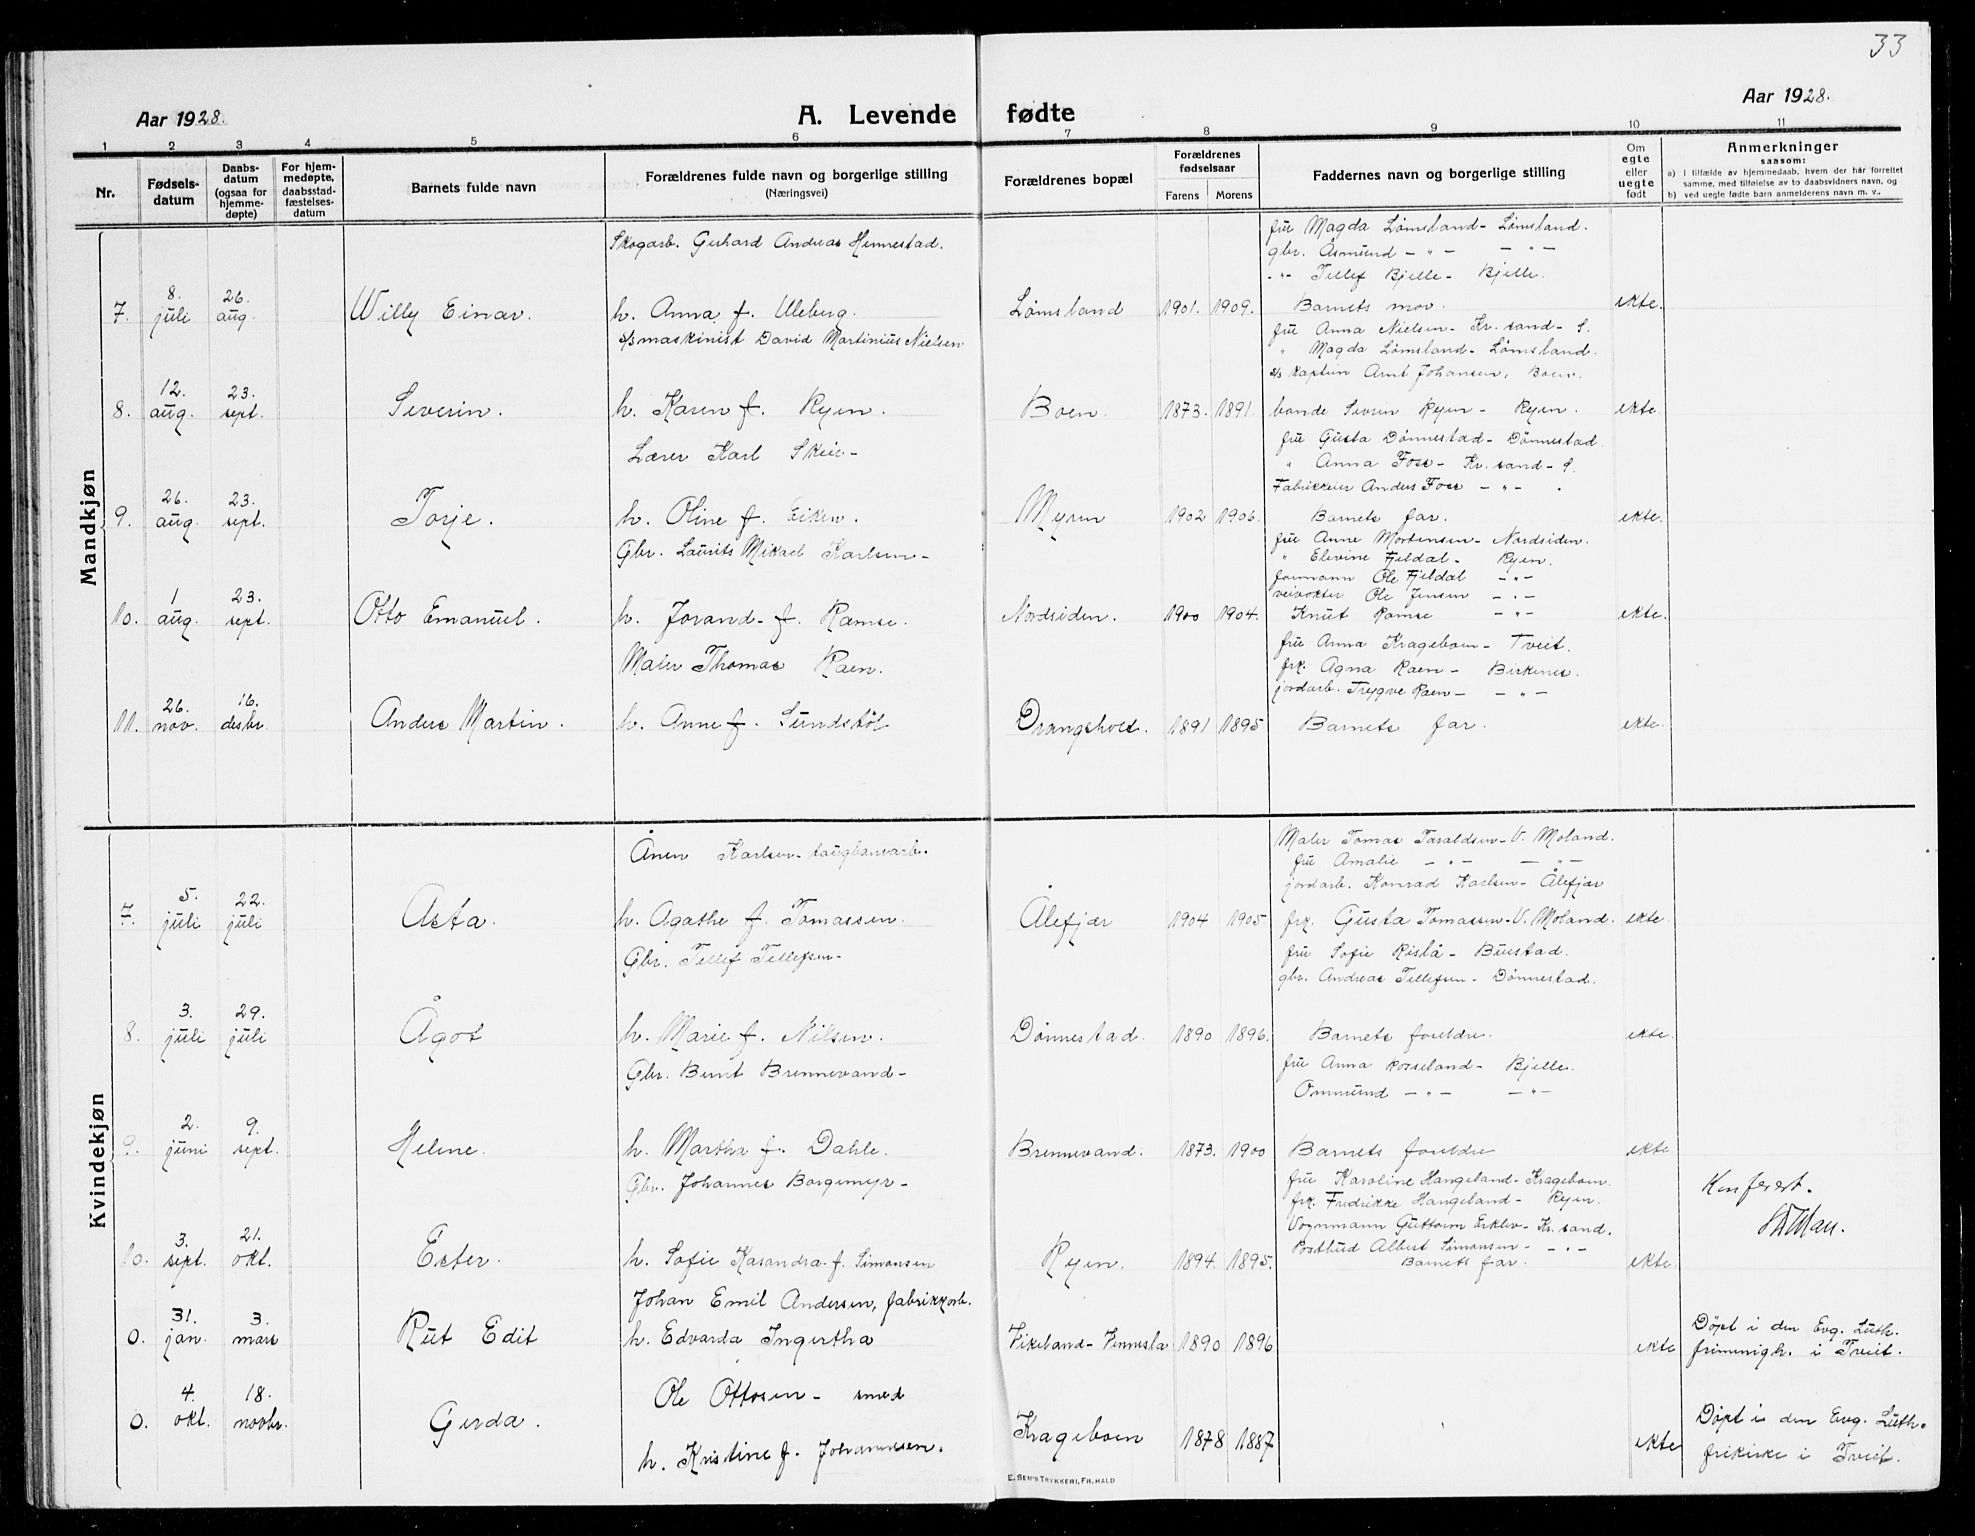 33
Aar 1928.
A. Levende fødte
Aar 1928.
1 2 3 4 5 6 7 8 9 10 11
Nr.
Fødsels-
datum
Daabs-
datum
(ogsaa for
hjemme-
døpte)
For hjem-
medøpte,
daabsstad-
fæstelses-
datum
Barnets fulde navn
Forældrenes fulde navn og borgerlige stilling
(Næringsvei)
Forældrenes bopæl
Forældrenes
fødselsaar
Farens Morens
Faddernes navn og borgerlige stilling
Om
egte
eller
uegte
født
Anmerkninger
saasom:
a) I tilfælde av hjemmedaab, hvem der har forrettet
samme, med tilføielse av to daabsvidners navn, og
b) ved uegte fødte barn anmelderens navn m. v..
Mandkjøn
Skogarb. Gerhard Andreas Hennestad.
fru Magda Lømsland - Lømsland.
gbr. Åsmund - " - - " -
- " - Tellef Bjelle - Bjelle.
7. 8. juli 26. aug. Willy Einar. h. Anna f. Uleberg. Lømsland 1901. 1909. Barnets mor. ekte.
s/s maskinist David Martinius Nielsen
fru Anna Nielsen - Kr. sand - S.
" Magda Lømsland - Lømsland.
s/s kaptein Arnt Johansen, Boen.
8. 12. aug. 23. sept. Severin. h. Karen f. Ryen. Boen. 1873. 1891. bonde Sevrin Ryen - Ryen. ekte.
Lærer Karl Skeie -
fru Gusta Dønnestad - Dønnestad.
" Anna Foss - Kr. sand - S.
Fabrikkeier Anders Foss - " - .
9. 26. aug. 23. sept. Torje. h. Oline f. Eiken. Myren 1902 1906. Barnets far. ekte.
Gbr. Laurits Mikael Karlsen -
fru Anne Mortensen - Nordsiden.
" Elevine Fjeldal - Ryen.
formann Ole Fjeldal - " -
veivokter Ole Jensen - " -
10. 1 aug. 23. sept. Otto Emanuel. h. Jorand - f. Ramse. Nordsiden. 1900 1904. Knut Ramse - " - ekte.
Maler Thomas Raen.
fru Anna Krageboen - Tveit.
frk. Agna Raen - Birkenes.
jordarb. Trygve Raen - - " -
11. 26. nov. 16. desbr. Anders Martin. h. Anne f. Sundstøl Drangsholt. 1891 1895 Barnets far. ekte.
Kvindekjøn
Ånen Karlsen - taugbanearb.
Maler Tomas Taraldsen - V. Moland.
fru Amalie - " - - " -
jordarb. Konrad Karlsen - Ålefjær
7. 5. juli 22. juli Asta. h. Agathe f. Tomassen. Ålefjær 1904 1905. frk. Gusta Tomassen - V. Moland. ekte.
Gbr. Tellef Tellefsen -
fru Sofie Rislå - Bustad.
gbr. Andreas Tellefsen - Dønnestad.
8. 3. juli 29. juli Ågot h. Marie f. Nilsen. Dønnestad. 1890 1896. Barnets foreldre. ekte.
Gbr. Bent Brennevand -
fru Anna Rosseland - Bjelle.
Ommund - " - - " -
9. 2. juni 9. sept. Helene. h. Martha f. Dahle. Brennevand. 1873. 1900 Barnets foreldre ekte
Gbr. Johannes Borgemyr -
fru Karoline Hangeland - Krageboen.
frk. Fredrikke Hangeland - Ryen.
Vognmann Guttorm Erklev - Kr. sand.
Postbud Albert Simonsen - - " -
Konferert.
10. 3. sept. 21. okt. Ester. h. Sofie Kasandra f. Simonsen Ryen. 1894. 1895. Barnets far. ekte
Johan Emil Andersen, fabrikkarb.
0. 31. jan. 3. mars Rut Edit h. Edvarda Ingertha Vikeland - Vennesla 1890 1896 ekte Døpt i den Evg. Luth.
frimenigh. i Tveit.
Ole Ottosen - smed
0. 4. okt. 18. novbr. Gerda. h. Kristine f. Johannesen. Krageboen 1878 1887 ekte Døpt i den Evg. Luth.
frikirke i Tveit.
E. SEM'S TRYKKERI, FR.HALD